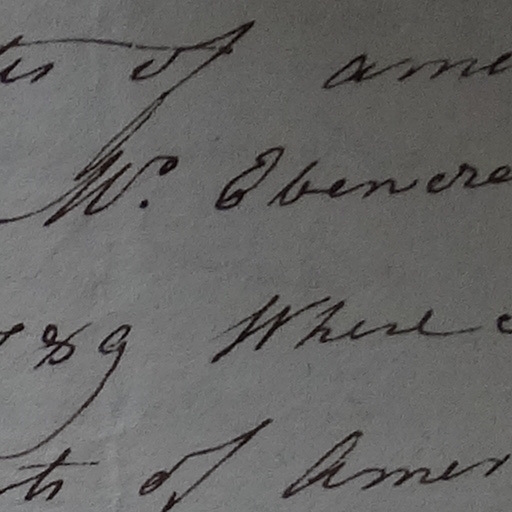 ts of ame
Wm. Ebeneze
789 Where
ts of Amer